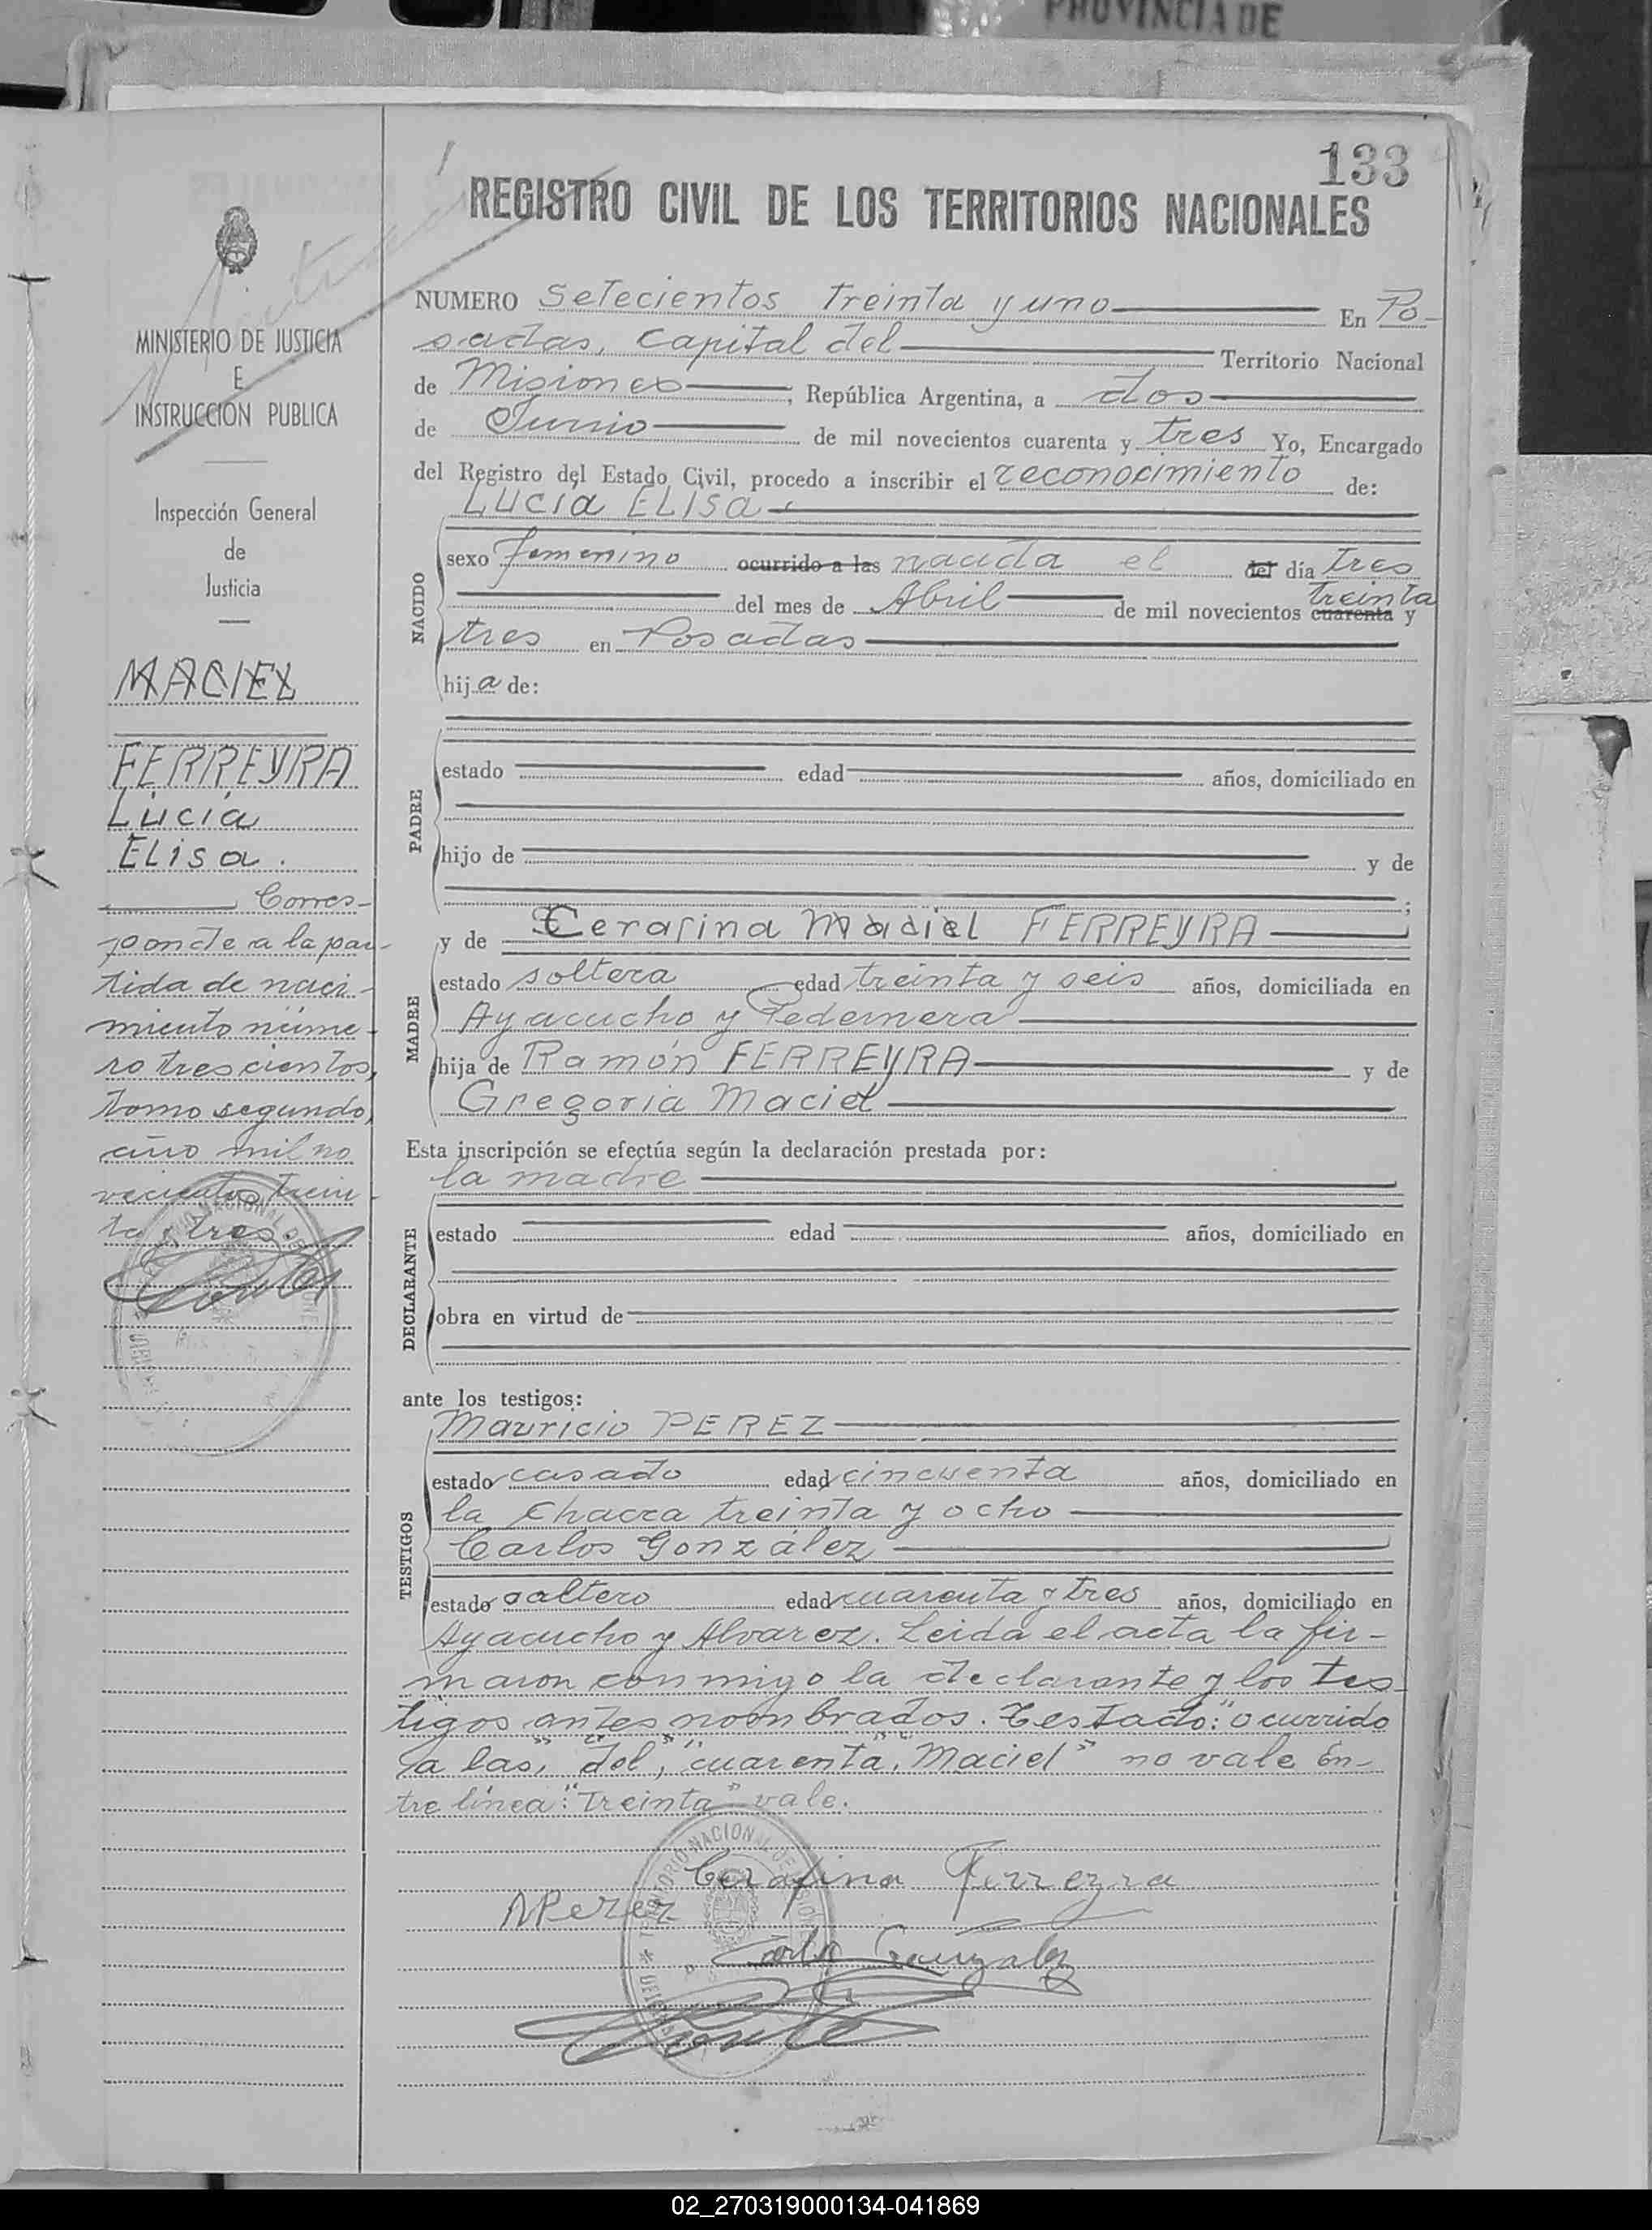 PROVINCIA DE
133
REGISTRO CIVIL DE LOS TERRITORIOS NACIONALES
MINISTERIO DE JUSTICIA
E
INSTRUCCION PUBLICA
Inspección General
de
Justicia
MACIEL
FERREYRA
Lucía
Elisa.
Corres-
ponde a la par-
tida de naci-
miento núme-
ro trescientos,
tomo segundo,
año mil no
vecientos trein-
ta y tres.
NUMERO Setecientos treinta y uno En Po-
sadas, capital del Territorio Nacional
de Misiones, República Argentina, a dos
de Junio de mil novecientos cuarenta y tres Yo, Encargado
del Registro del Estado Civil, procedo a inscribir el reconocimiento de:
Lucía Elisa.
NACIDO
sexo femenino ocurrido a las nacida el del día tres
treinta
del mes de Abril de mil novecientos cuarenta y
tres en Posadas
hija de:
PADRE
estado edad años, domiciliado en
hijo de y de
;
MADRE
y de Cerafina Maciel FERREYRA
estado soltera edad treinta y seis años, domiciliada en
Ayacucho y Pedernera
hija de Ramón FERREYRA y de
Gregoria Maciel
Esta inscripción se efectúa según la declaración prestada por:
la madre
DECLARANTE
estado edad años, domiciliado en
obra en virtud de
ante los testigos:
TESTIGOS
Mauricio PEREZ
estado casado edad cincuenta años, domiciliado en
la chacra treinta y ocho
Carlos González
estado soltero edad cuarenta y tres años, domiciliado en
Ayacucho y Alvarez. Leida el acta la fir-
maron conmigo la declarante y los tes-
tigos antes nombrados. Testado: "ocurrido
a las", "del", "cuarenta", "Maciel" no vale En-
tre línea: "treinta" vale.
Cerafina Ferreyra
MPerez
Carlos Gonzalez
02_270319000134-041869